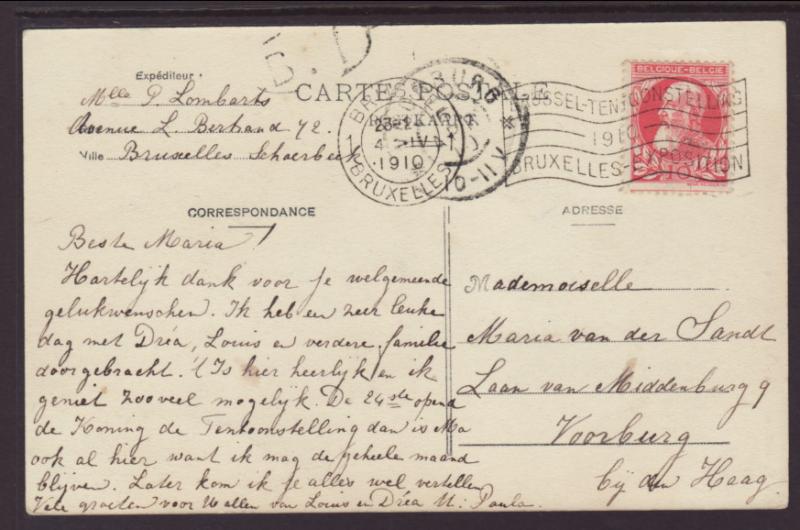 Expéditeur
CARTE POSTALE
POSTKAART
Mlle P. Lombarts
Avenue L. Bertrand 72.
Ville Bruxelles Schaerbeek
BRUSSEL
4 IV
1910
BRUXELLES
10-11 V
BELGIQUE-BELGIE
BRUSSEL-TENTOONSTELLING
1910
BRUXELLES-EXPOSITION
CORRESPONDANCE
Beste Maria
Hartelijk dank voor je welgemeende
gelukwenschen. Ik heb een zeer leuke
dag met Dréa, Louis en verdere familie
doorgebracht. 't Is hier heerlijk en ik
geniet zooveel mogelijk. De 24ste opend
de Koning de Tentoonstelling dan is Ma
ook al hier want ik mag de geheelen maand
blijven. Later kom ik je alles wel vertellen
Vele groeten voor U allen van Louis en Dréa U: Paula.
ADRESSE
Mademoiselle
Maria van der Sandt
Laan van Middenburg 9
Voorburg
bij den Haag.